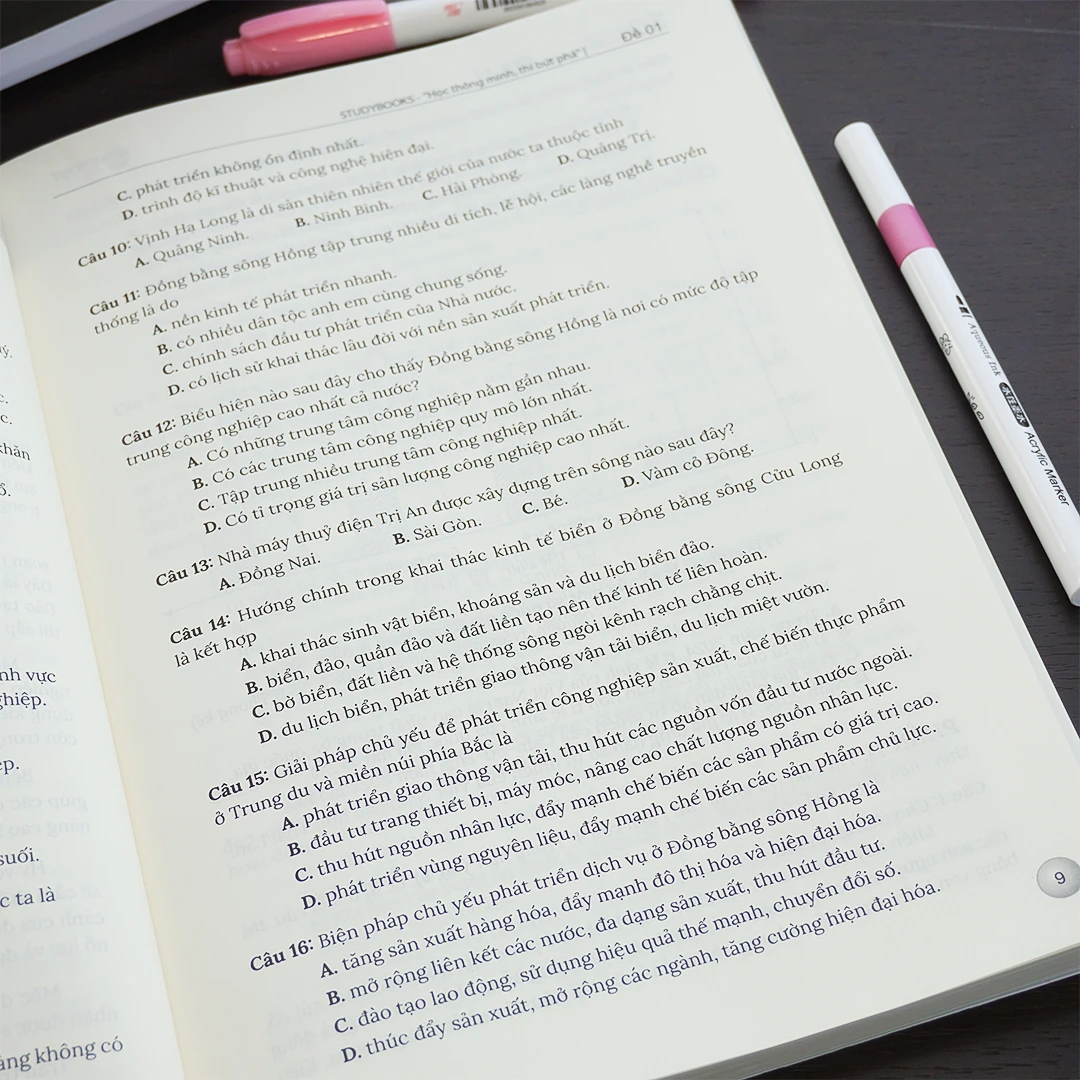 Đề 01
STUDYBOOKS - "Học thông minh, thi bứt phá" |
C. phát triển không ổn định nhất.
D. trình độ kĩ thuật và công nghệ hiện đại.
Câu 10: Vịnh Hạ Long là di sản thiên nhiên thế giới của nước ta thuộc tỉnh
A. Quảng Ninh. B. Ninh Bình. C. Hải Phòng. D. Quảng Trị.
Câu 11: Đồng bằng sông Hồng tập trung nhiều di tích, lễ hội, các làng nghề truyền
thống là do
A. nền kinh tế phát triển nhanh.
B. có nhiều dân tộc anh em cùng chung sống.
C. chính sách đầu tư phát triển của Nhà nước.
D. có lịch sử khai thác lâu đời với nền sản xuất phát triển.
Câu 12: Biểu hiện nào sau đây cho thấy Đồng bằng sông Hồng là nơi có mức độ tập
trung công nghiệp cao nhất cả nước?
A. Có những trung tâm công nghiệp nằm gần nhau.
B. Có các trung tâm công nghiệp quy mô lớn nhất.
C. Tập trung nhiều trung tâm công nghiệp nhất.
D. Có tỉ trọng giá trị sản lượng công nghiệp cao nhất.
Câu 13: Nhà máy thuỷ điện Trị An được xây dựng trên sông nào sau đây?
A. Đồng Nai. B. Sài Gòn. C. Bé. D. Vàm cỏ Đông.
Câu 14: Hướng chính trong khai thác kinh tế biển ở Đồng bằng sông Cửu Long
là kết hợp
A. khai thác sinh vật biển, khoáng sản và du lịch biển đảo.
B. biển, đảo, quần đảo và đất liền tạo nên thế kinh tế liên hoàn.
C. bờ biển, đất liền và hệ thống sông ngòi kênh rạch chằng chịt.
D. du lịch biển, phát triển giao thông vận tải biển, du lịch miệt vườn.
Câu 15: Giải pháp chủ yếu để phát triển công nghiệp sản xuất, chế biến thực phẩm
ở Trung du và miền núi phía Bắc là
A. phát triển giao thông vận tải, thu hút các nguồn vốn đầu tư nước ngoài.
B. đầu tư trang thiết bị, máy móc, nâng cao chất lượng nguồn nhân lực.
C. thu hút nguồn nhân lực, đẩy mạnh chế biến các sản phẩm có giá trị cao.
D. phát triển vùng nguyên liệu, đẩy mạnh chế biến các sản phẩm chủ lực.
Câu 16: Biện pháp chủ yếu phát triển dịch vụ ở Đồng bằng sông Hồng là
A. tăng sản xuất hàng hóa, đẩy mạnh đô thị hóa và hiện đại hóa.
B. mở rộng liên kết các nước, đa dạng sản xuất, thu hút đầu tư.
C. đào tạo lao động, sử dụng hiệu quả thế mạnh, chuyển đổi số.
D. thúc đẩy sản xuất, mở rộng các ngành, tăng cường hiện đại hóa.
9
khăn
nh vực
ghiệp.
suối.
c ta là
không có
Aqueous Ink
Acrylic Marker